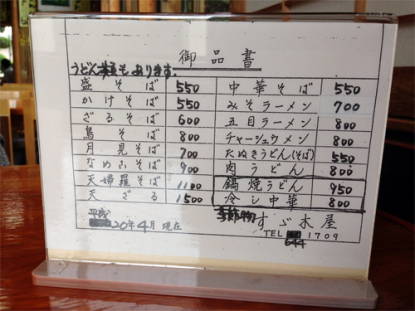 御品書
うどん類もあります.
盛そば 550 中華そば 550
かけそば 550 みそラーメン 700
ざるそば 600 五目ラーメン 800
鳥そば 800 チャーシュウメン 800
月見そば 700 たぬきうどん(そば) 550
なめこそば 900 肉うどん 800
天婦羅そば 1100 鍋焼うどん 950
天ざる 1500 冷し中華 800
平成 季節物
20年4月現在 すゞ木屋
TEL 1709